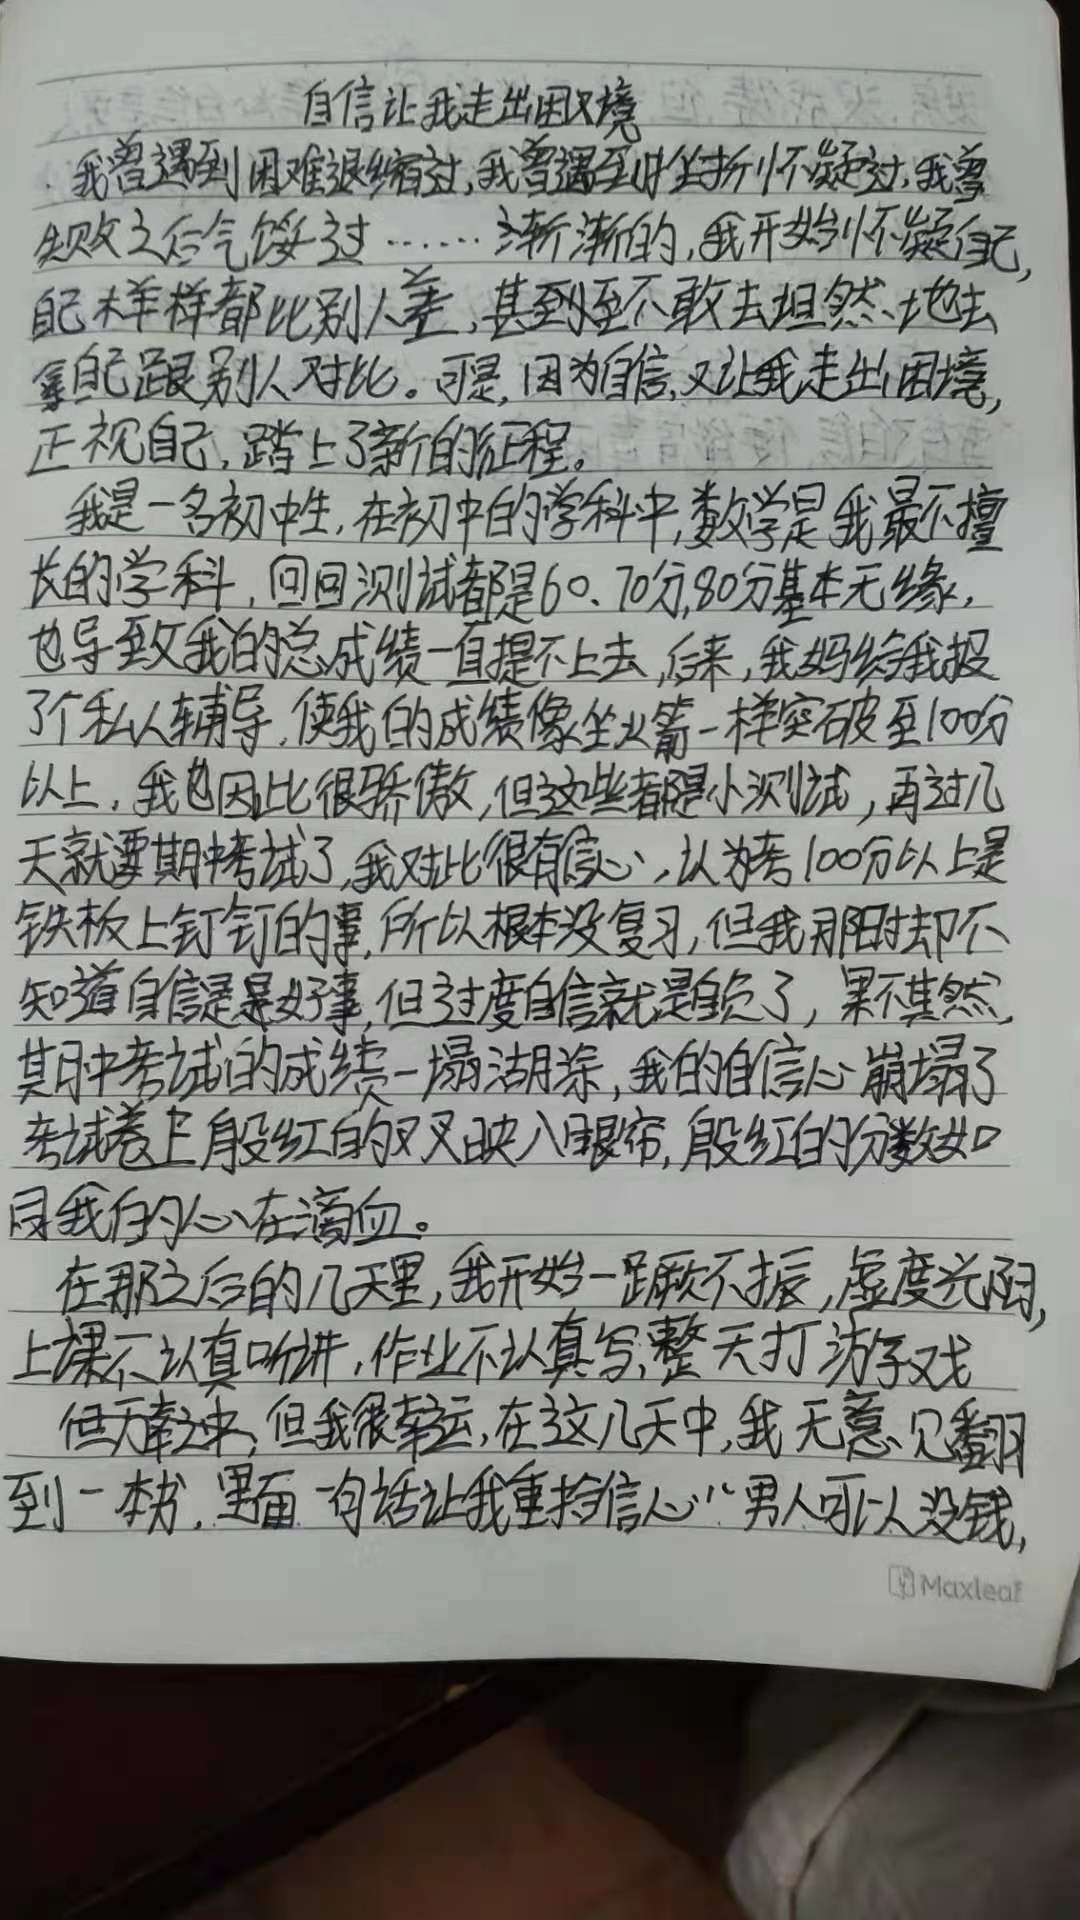 自信让我走出困境
我曾遇到困难退缩过,我曾遇到挫折怀疑过,我曾
失败之后气馁过……渐渐的,我开始怀疑自己,
自己样样都比别人差,甚至不敢去坦然地去
拿自己跟别人对比。可是,因为自信,又让我走出困境,
正视自己,踏上了新的征程。
我是一名初中生,在初中的学科中,数学是我最不擅
长的学科,回回测试都是60、70分,80分基本无缘,
也导致我的总成绩一直提不上去,后来,我妈给我报
了个私人辅导,使我的成绩像坐火箭一样突破至100分
以上,我也因此很骄傲,但这些都是小测试,再过几
天就要期中考试了,我对此很有信心,认为考100分以上是
铁板上钉钉的事,所以根本没复习,但我那时却不
知道自信是好事,但过度自信就是自负了,果不其然,
期中考试的成绩一塌湖涂,我的自信心崩塌了
考试卷上殷红的叉叉映入眼帘,殷红的分数如
同我的心在滴血。
在那之后的几天里,我开始一蹶不振,虚度光阴,
上课不认真听讲,作业不认真写,整天打游戏
但万幸之中,但我很幸运,在这几天中,我无意见翻
到一本书,里面一句话让我重拾信心“男人可以没钱,
Maxleaf